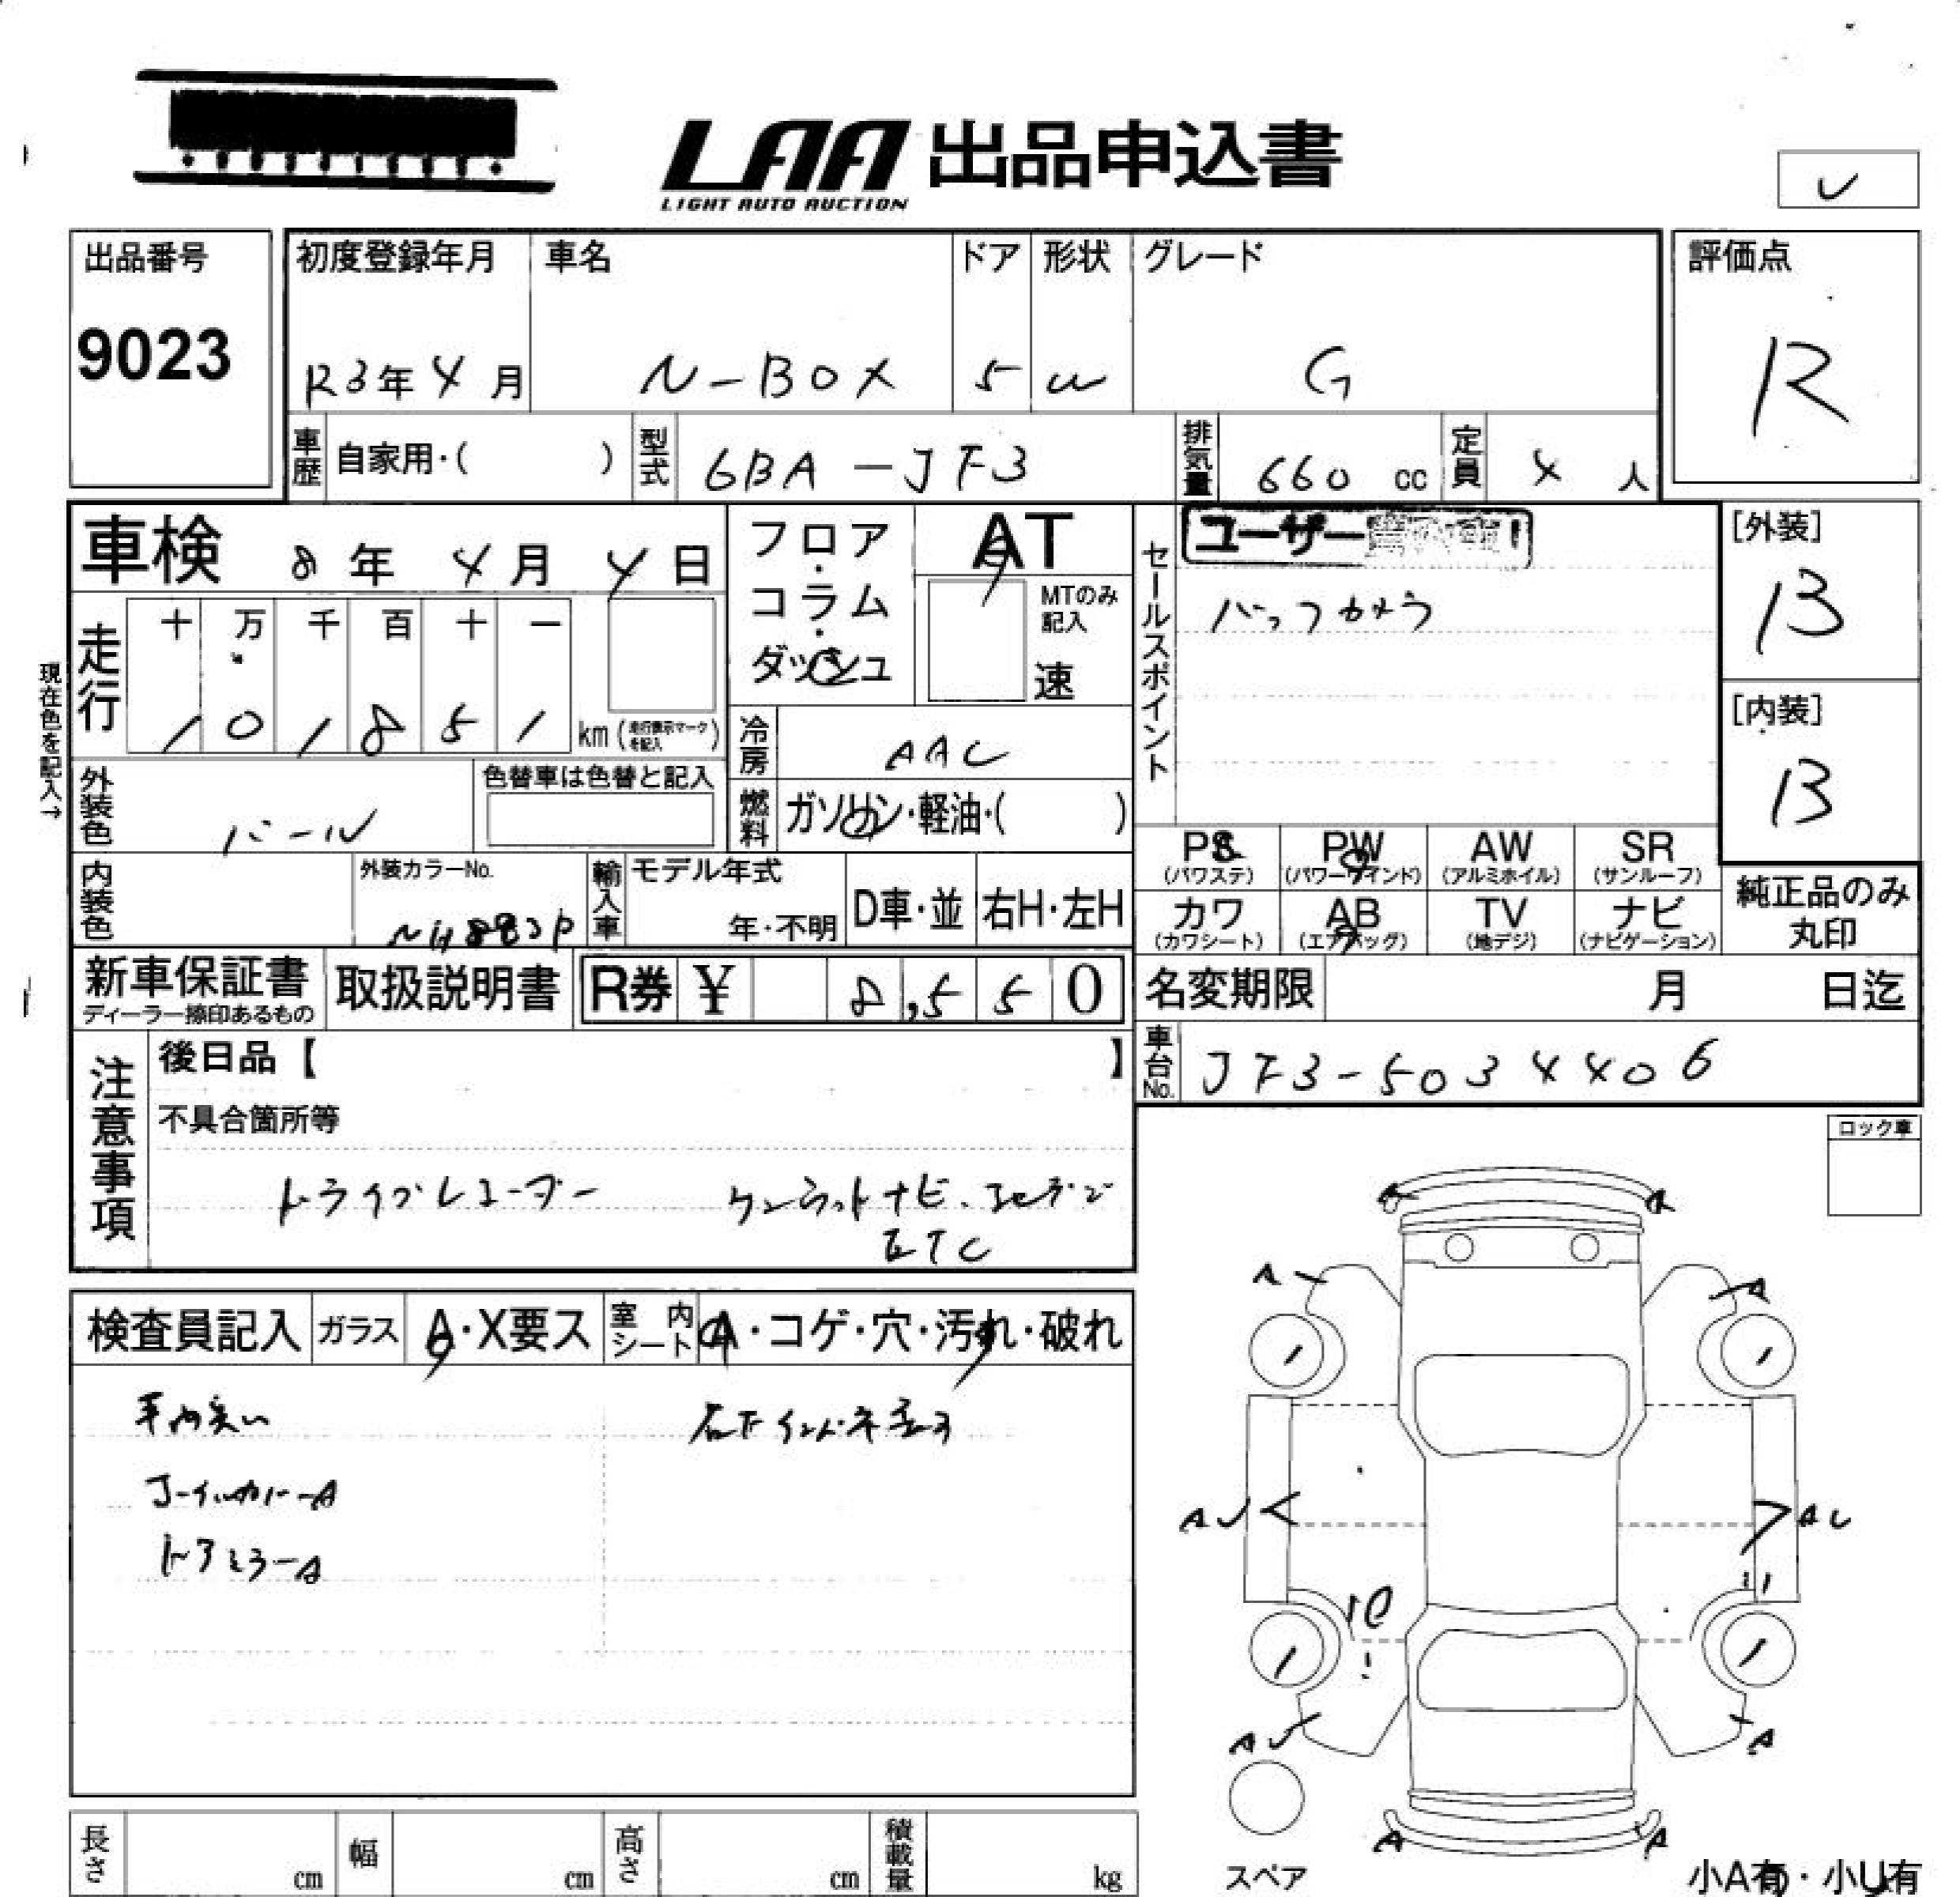 LAA 出品申込書
LIGHT AUTO AUCTION
出品番号
9023
初度登録年月
R3年4月
車名
N-BOX
ドア
5
形状
W
グレード
G
評価点
R
車歴 自家用・( )
型式 6BA-JF3
排気量 660 cc
定員 4 人
車検 8年4月4日
フロア・コラム・ダッシュ
AT
MTのみ記入
速
セールスポイント
ユーザー
バックカメラ
[外装]
B
[内装]
B
現在色を記入→
走行
十 万 千 百 十 一
1 0 1 8 5 1 km (走行表示マークを記入)
冷房 AAC
外装色 パール
色替車は色替と記入
燃料 ガソリン・軽油・( )
PS (パワステ)
PW (パワーウインド)
AW (アルミホイル)
SR (サンルーフ)
内装色
外装カラーNo.
NH883P
輸入車
モデル年式
年・不明
D車・並
右H・左H
カワ (カワシート)
AB (エアバッグ)
TV (地デジ)
ナビ (ナビゲーション)
純正品のみ丸印
新車保証書
ディーラー捺印あるもの
取扱説明書
R券 ¥ 8,550
名変期限 月 日迄
車台No. JF3-5034406
注意事項
後日品【 】
不具合箇所等
ドライブレコーダー
ケンウッドナビ・フルセグ
ETC
ロック車
検査員記入
ガラス A・X要ス
室内シート A・コゲ・穴・汚れ・破れ
車内臭い
ホイルカバーA
ドアミラーA
A A
A A
AU AU
10
AU A
A A
スペア
小A有・小U有
長さ cm
幅 cm
高さ cm
積載量 kg